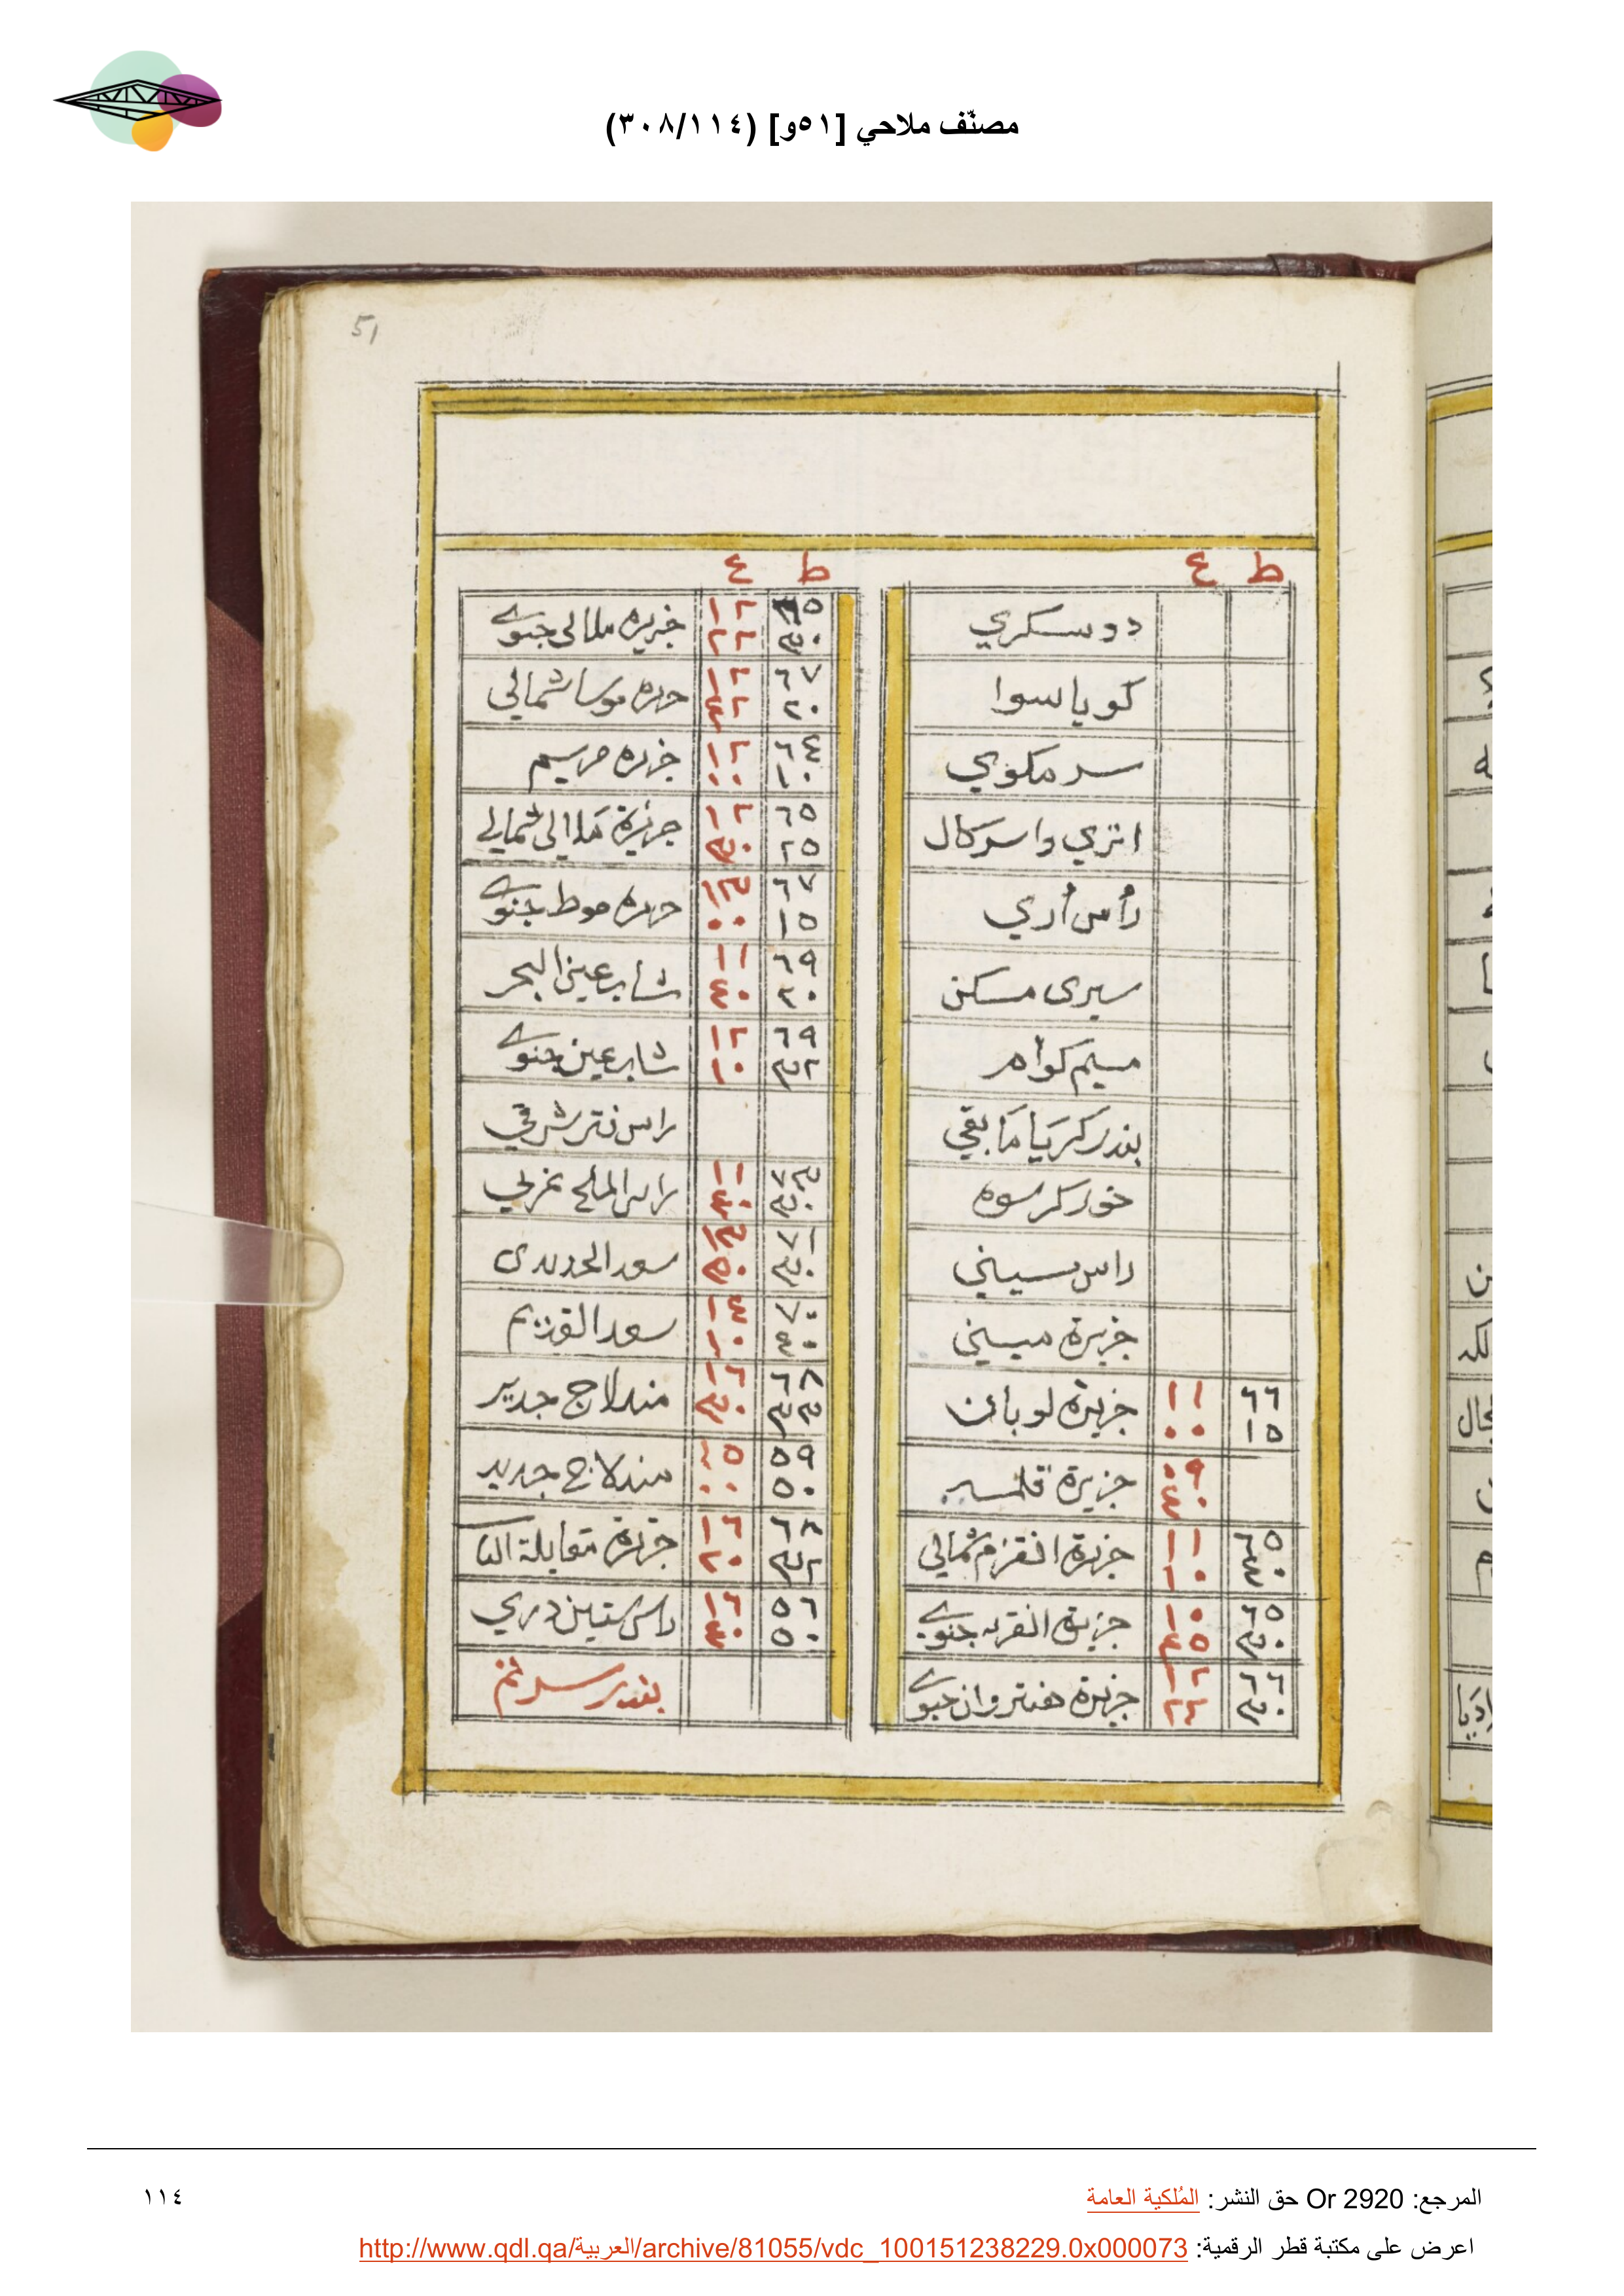 مصنّف ملاحي [٥١و] (٣٠٨/١١٤)
51
ط ع
دوسكري
كوياسوا
سر مكوي
اتري واسركال
رأس أري
سيرى مسكن
ميم كوأم
بندر كريا مابقي
خور كرسوه
راس سيني
جزيرة ميني
٦٦ ١٥ ١١ ٠٠ جزيرة لوبائن
٠٩ ٤٠ جزيرة
٦٥ ٤٠ ١١ ١٠ جزيرة القزم شمالي
٦٥ ٣٠ ١٠ ٤٥ جزيرة جنوبي
٦٦ ٣٠ ١٢ ٢٢ جزيرة هنتروان جنوبي
ط ع
٣٠ ١٢ ٢٢ جزيره ملالى جنوبي
٦٧ ٢٠ ١٢ ٤٢ موسا شمالي
٦٤ ١٠ ١٢ ٠٠ جزيره مريم
٦٥ ٢٥ ١٢ ٣٠ جزيرة ملاالى شمالي
٦٧ ١٥ ١٣ ٠٠ موط جنوبي
٦٩ ٢٠ ١١ ٤٠ شابر عين البحر
٦٩ ٣٢ ١٢ ١٠ شابر عين جنوبي
راس فتر شرقي
٧٣ ٣٠ ١١ ٤٠ راس الملح غربي
٧١ ٣٠ ١٣ ٥٠ سعد الحديدى
٧٠ ٤٠ ١٤ ١٠ سعد القديم
٦٨ ٣٣ ١٦ ٣٠ مندلاج جدير
٥٩ ٥٠ ١٥ ٠٠ مندلاج جديد
٦٨ ٣٢ ١٦ ٢٠ جزيرة مقابلة
٥٦ ٥٠ ١٦ ٤٠ راس ستين دري
بندر
المرجع: Or 2920 حق النشر: المُلكية العامة
١١٤
اعرض على مكتبة قطر الرقمية: http://www.qdl.qa/العربية/archive/81055/vdc_100151238229.0x000073